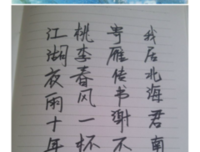 我居北海君南
寄雁传书谢不
桃李春风一杯
江湖夜雨十年